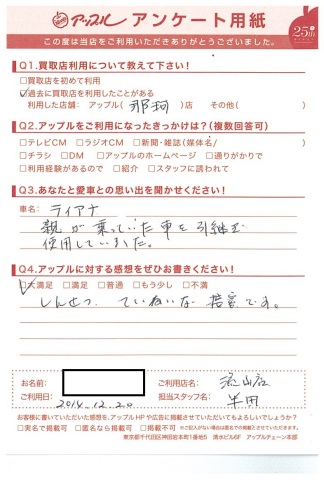 アップル アンケート用紙
25th
この度は当店をご利用いただきありがとうございました。
Q1.買取店利用について教えて下さい!
□買取店を初めて利用
□過去に買取店を利用したことがある
利用した店舗: アップル( 那珂 )店 その他( )
Q2.アップルをご利用になったきっかけは?(複数回答可)
□テレビCM □ラジオCM □新聞・雑誌(媒体名/ )
□チラシ □DM □アップルのホームページ □通りがかりで
□利用経験があるので □紹介 □スタッフに誘われて
Q3.あなたと愛車との思い出を聞かせください!
車名: ティアナ
親が乗っていた車を引継ぎ
使用していました。
Q4.アップルに対する感想をぜひお書きください!
□大満足 □満足 □普通 □もう少し □不満
しんせつ、ていねいな接客です。
お名前:
ご利用店名:
ご利用日: 2014.12.20
担当スタッフ名: 半田
お客様に書いていただいた感想を、アップルHPや広告に掲載させていただいてもよろしいでしょうか?
□実名で掲載可 □匿名なら掲載可 □掲載不可 ※ご記入がない場合は匿名で掲載させていただきます。
東京都千代田区神田岩本町1番地5 清水ビル6F アップルチェーン本部